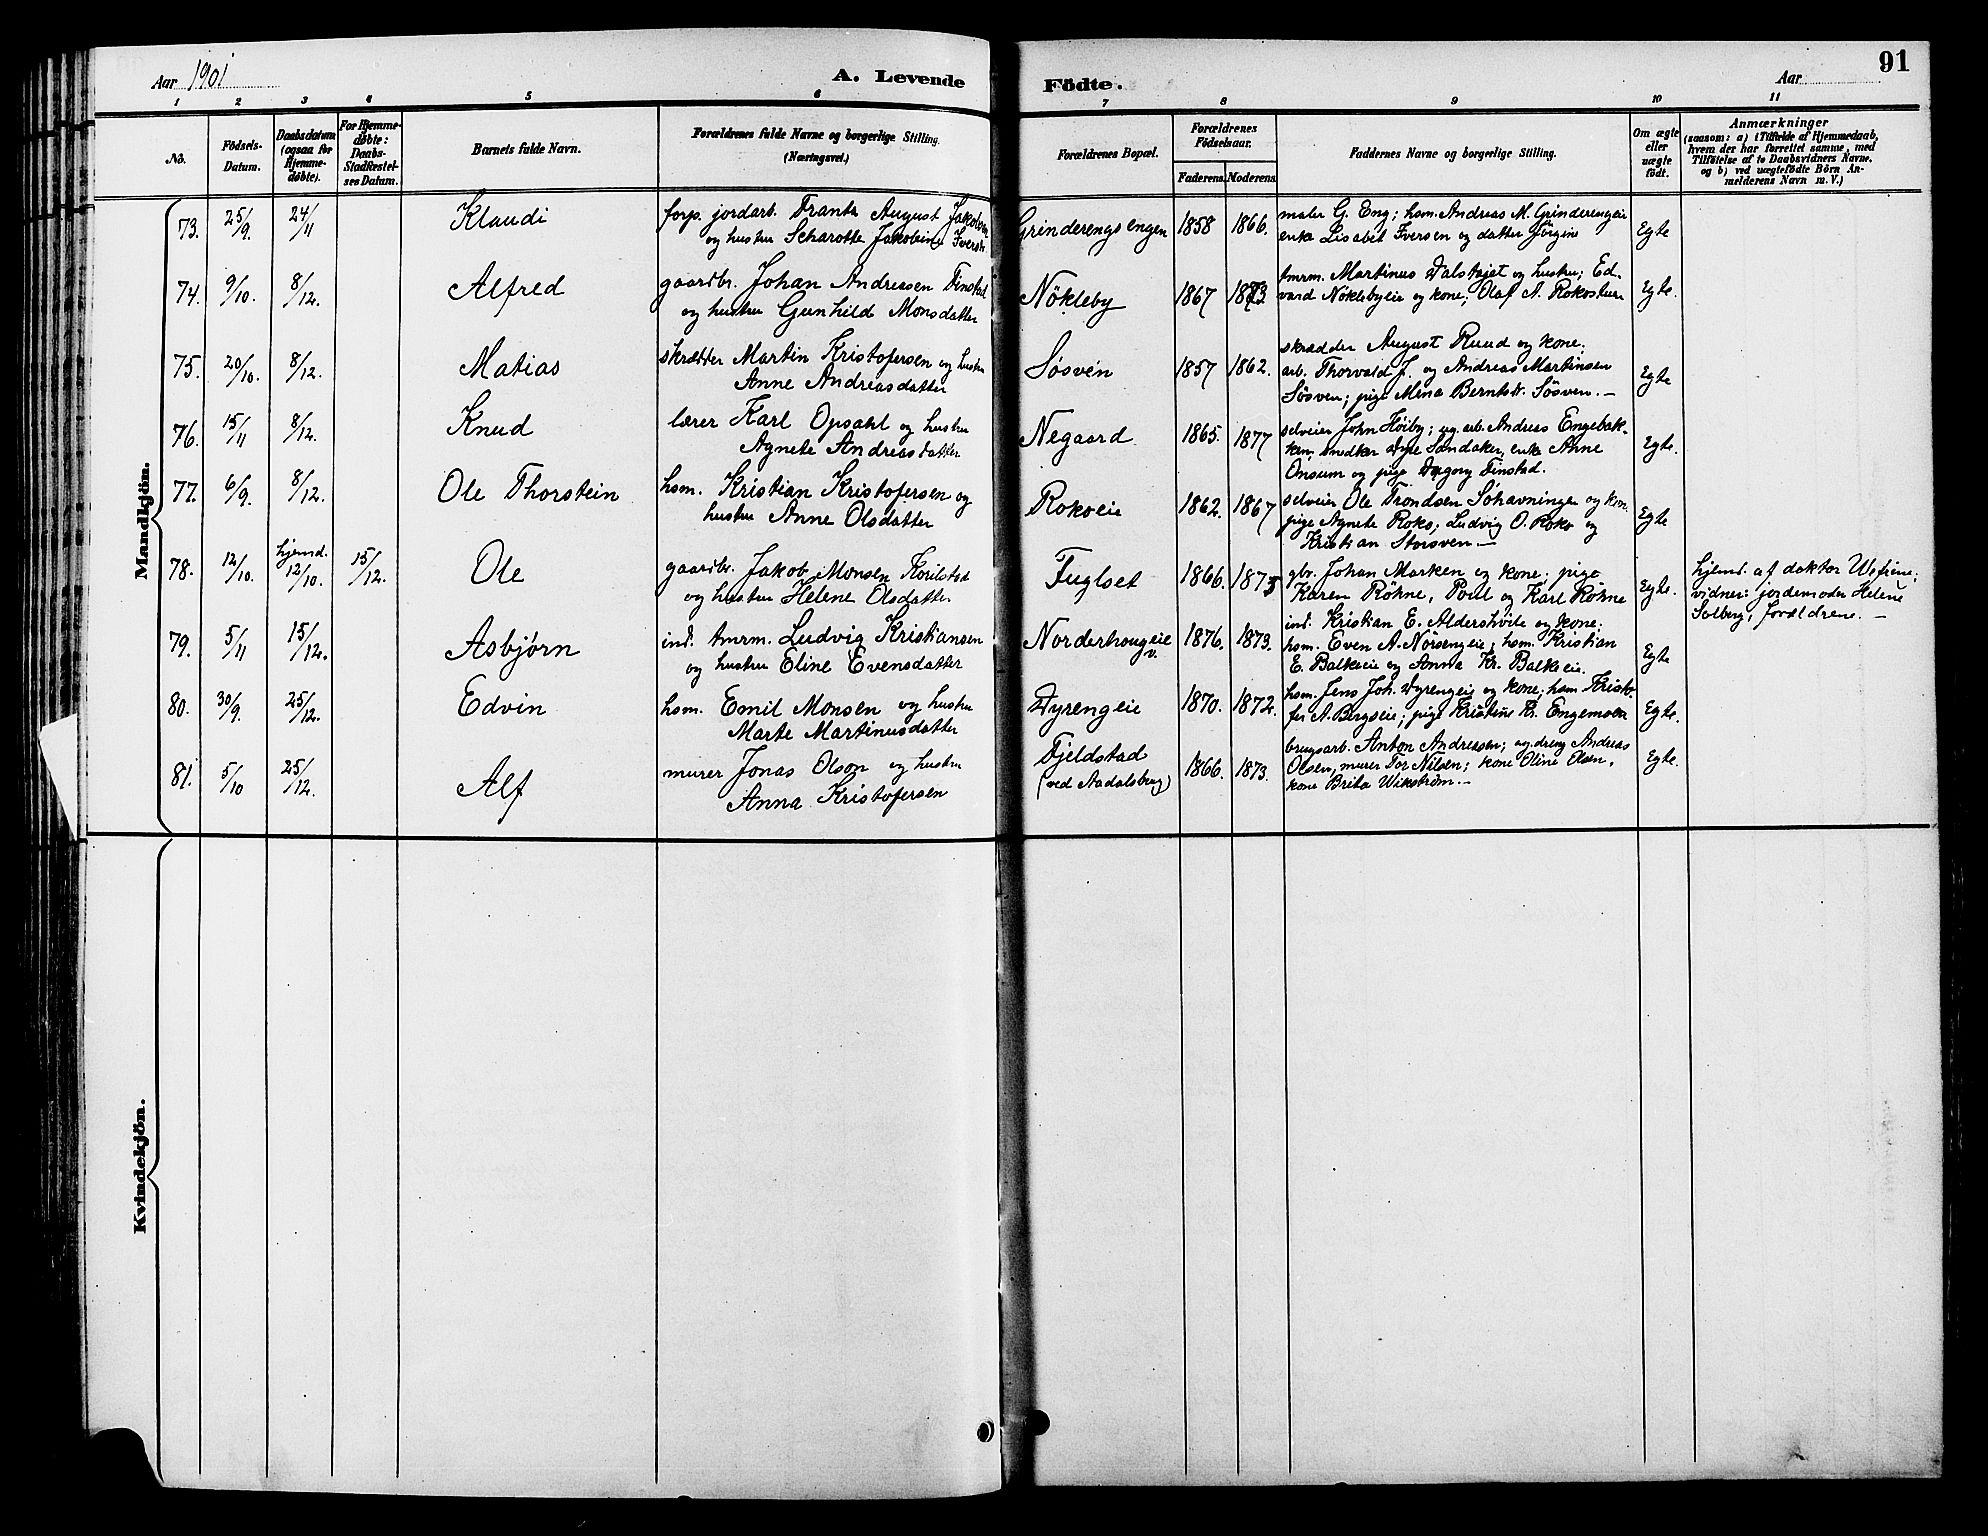 Aar 1901
A. Levende
Födte.
Aar
91
1 2 3 4 5 6 7 8 9 10 11
No.
Födsels-
Datum.
Daabsdatum
(ogsaa for
Hjemme-
døbte).
For Hjemme-
døbte:
Daabs-
Stadfæstel-
ses Datum.
Barnets fulde Navn.
Forældrenes fulde Navne og borgerlige Stilling.
(Næringsvei.)
Forældrenes Bopæl.
Forældrenes
Födselsaar.
Faderens.
Moderens.
Faddernes Navne og borgerlige Stilling.
Om ægte
eller
uægte
født.
Anmærkninger
(saasom: a) i Tilfælde af Hjemmedaab,
hvem der har forrettet samme, med
Tilføielse af to Daabsvidners Navne,
og b) ved uægtefødte Börn An-
melderens Navn m. V.)
Mandkjön.
73. 25/9. 24/11 Klaudi
forp. jordarb. Frants August Jakobsen
og hustru Scharotte Jakobine Iversd.
Grinderengs engen 1858 1866.
maler G. Eng; hsm. Andreas M. Grinderengeie
enke Lisabet Iversen og datter Jörgine
Egte
74. 9/10. 8/12. Alfred
gaardbr. Johan Andreasen Finstad
og hustru Gunhild Monsdatter
Nökleby 1867 1873
tmrm. Martinus Dalstøjet og hustru; Ed-
vard Nöklebyeie og kone; Olaf A. Rokostuen
Egte.
75. 20/10. 8/12. Matias
skrædder Martin Kristofersen og hustru
Anne Andreasdatter
Søsven 1857 1862.
skrædder August Ruud og kone;
arb. Thorvald J. og Andreas Martinsen
Søsven; pige Mina Berntsd. Søsven. —
Egte
76. 15/11 8/12. Knud
lærer Karl Opsahl og hustru
Agnete Andreasdatter
Negaard 1865. 1877
selveier John Høiby; ug. arb. Andreas Engebak-
ken, snedker Dyre Sandaker, enke Anne
Onsum og pige Dagny Finstad.
Egte.
77. 6/9. 8/12. Ole Thorstein
hsm. Kristian Kristofersen og
hustru Anne Olsdatter
Rokoeie 1862. 1867
selveier Ole Trondsen Søhavningen og kone.
pige Agnete Roko; Ludvig O. Roko og
Kristian Storsven —
Egte
78. 12/10. hjemd. 12/10. 15/12. Ole
gaardbr. Jakob Monsen
og hustru Helene Olsdatter
Fuglset 1866. 1875
gbr. Johan Marken og kone; pige
Karen Röhne, Poul og Karl Röhne
Egte.
hjemd. af doktor
vidner: jordemoder Helene
Solberg, forældrene. —
79. 5/11 15/12. Asbjørn
ind. tmrm. Ludvig Kristiansen
og hustru Eline Evensdatter
Norderhougeie v. 1876. 1873.
ind. Kristian E. Aldershvile og kone;
hsm. Even A. Nörsengeie; hsm. Kristian
E. Balkeeie og Anna Kr. Balkeeie.
Egte
80. 30/9. 25/12. Edvin
hsm. Emil Monsen og hustru
Marte Martinusdatter
Dyrengeie 1870. 1872.
hsm. Jens Joh. Dyrengeie og kone; hsm. Kristo-
fer A. Bergseie; pige Kristine Kr. Engemoen
Egte.
81. 5/10 25/12. Alf
murer Jonas Olson og hustru
Anna Kristofersen
Fjeldstad
(ved Aadalsbrug) 1866. 1873.
brugsarb. Anton Andreasen; ug. dreng Andreas
Olsen, murer Tor Nilsen; kone Oline Olsen,
kone Brita Wikström. —
Egte.
Kvindekjön.